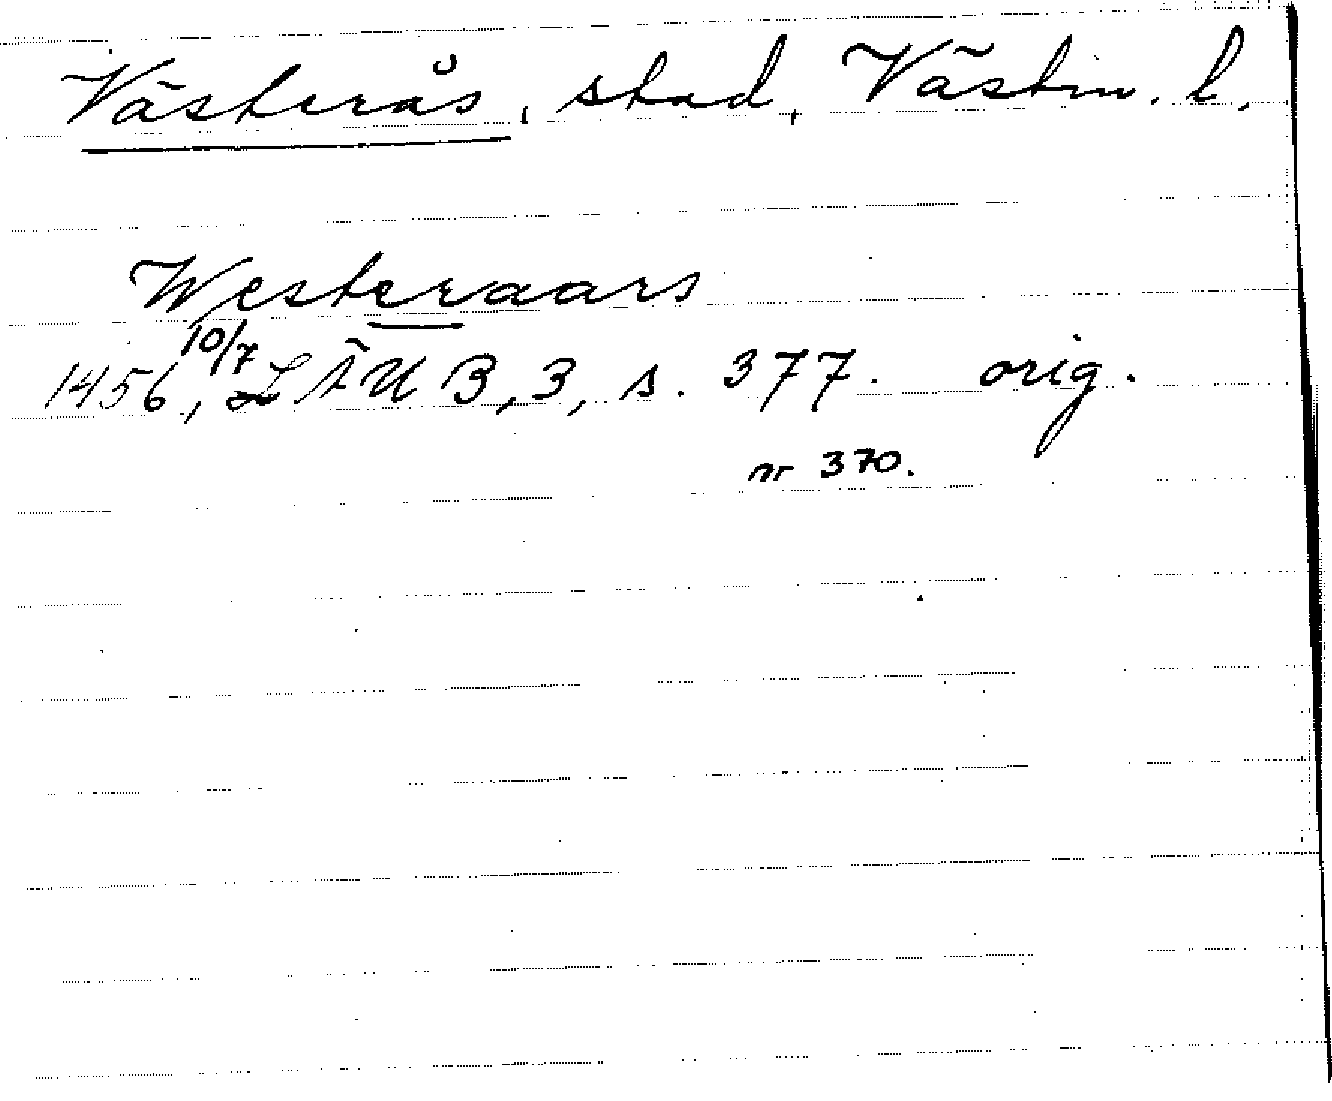 Västerås, stad, Västm. l.
Westeraars
1456, 10/7 LÜUB, 3, s. 377. orig.
nr 370.